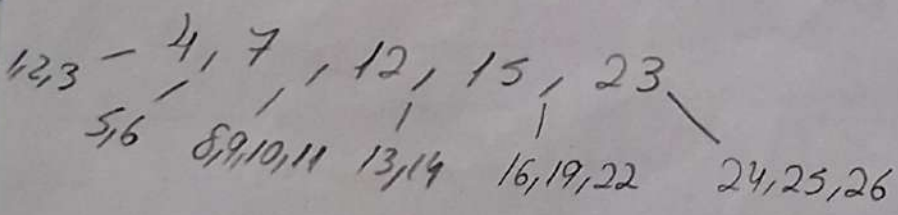 1,2,3 – 4, 7 , 12, 15, 23
5,6 8,9,10,11 13,14 16,19,22 24,25,26